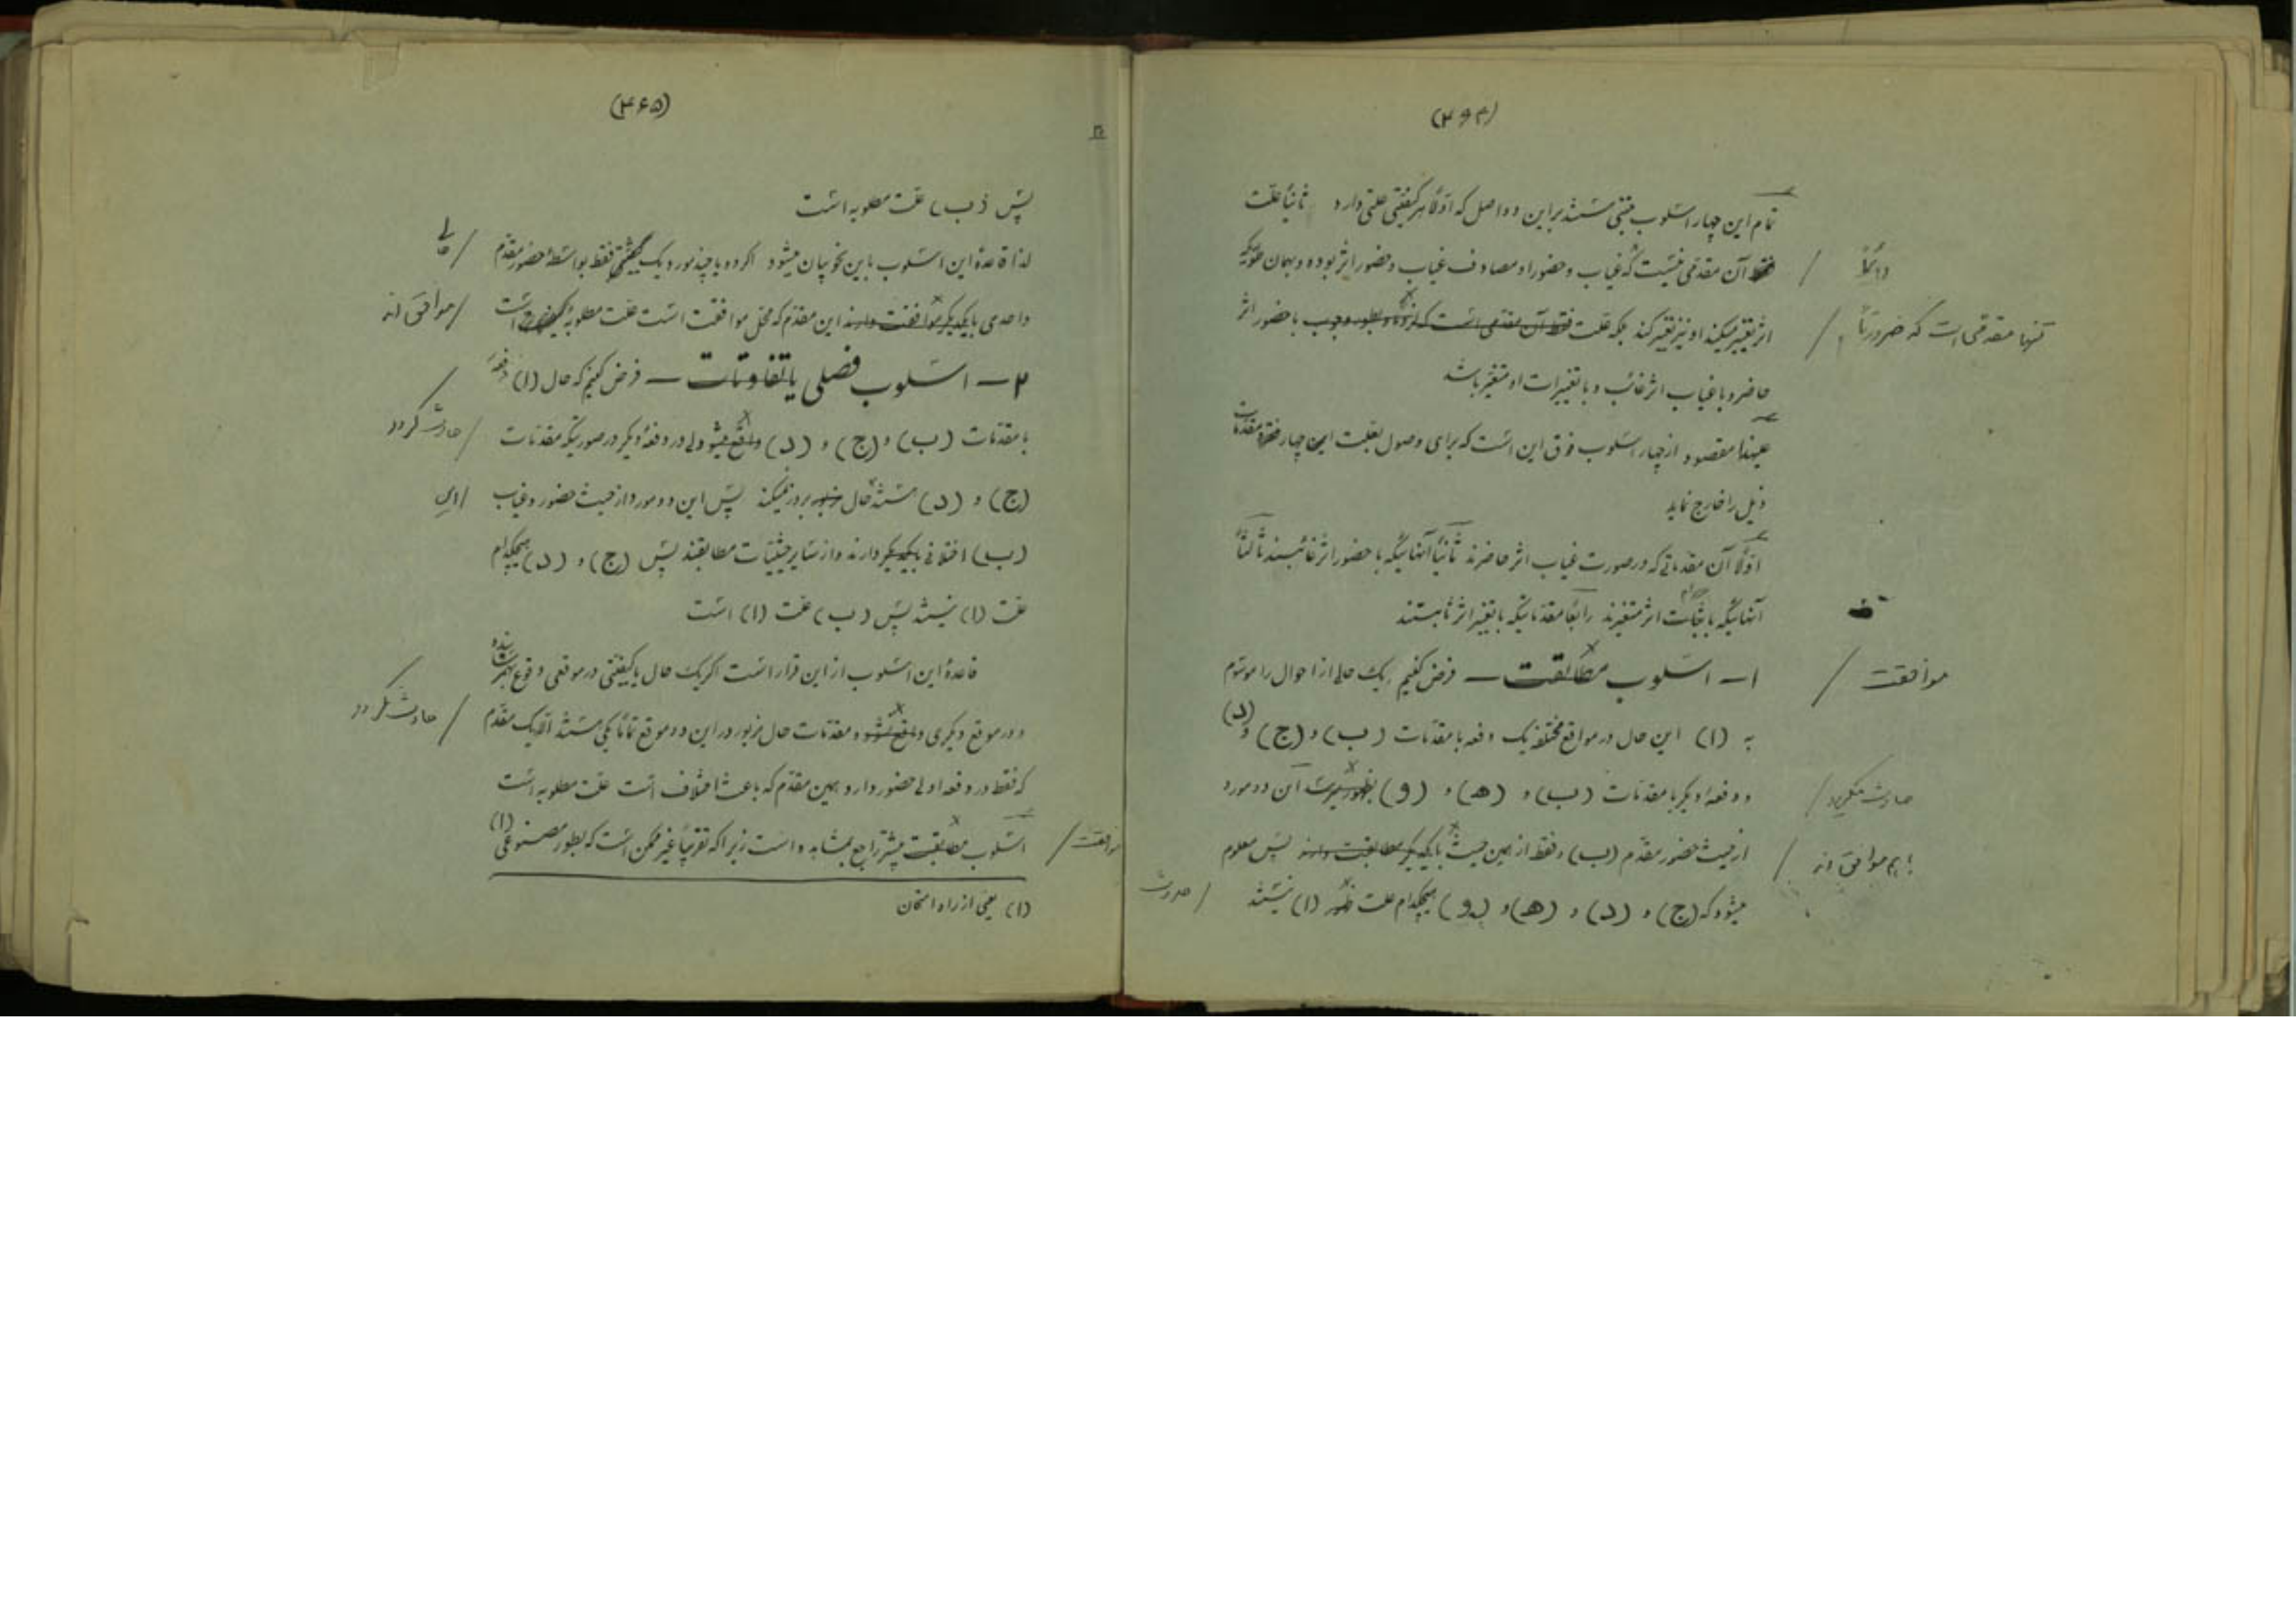 (۴۶۴)
تمام این چهار اسلوب مبتنی هستند براین دو اصل که اوّلاً هر کیفیتی علتی دارد ثانیاً علت
آن مقدمی نیست که غیاب و حضور او مصادف غیاب و حضور اثر بوده و بهمان طوریکه
دائماً
اثر تغییر میکند او نیز تغییر کند بلکه علت فقط آن مقدمی است که لزوماً و بطور وجوب با حضور اثر
تنها مقدمی است که ضرورتاً
حاضر و با غیاب اثر غائب و با تغییرات او متغیر باشد
عیندا مقصود از چهار اسلوب فوق این است که برای وصول بعلت این چهار فقره مقدمات
ذیل را خارج نماید
اوّلاً آن مقدماتی که در صورت غیاب اثر حاضرند ثانیاً آنهائیکه با حضور اثر غائبند ثالثاً
آنهائیکه با ثبات اثر متغیرند رابعاً مقدماتیکه با تغیر اثر ثابتند
۱ – اسلوب مطابقت – فرض کنیم یک حالی از احوال را موسوم
موافقت
به (ا) این حال در مواقع مختلفه یک دفعه با مقدمات (ب) و (ج) و (د)
و دفعه دیگر با مقدمات (ب) و (ه) و (و) بظهور میرسد این دو مورد
حادث میگردد
از حیث حضور مقدم (ب) و فقط از همین حیث با یکدیگر مطابقت دارند پس معلوم
باهم موافق اند
میشود که (ج) و (د) و (ه) و (و) هیچکدام علت ظهور (ا) نیستند
حدوث
(۴۶۵)
پس (ب) علت مطلوبه است
لذا قاعدهٔ این اسلوب باین نحو بیان میشود اگر دو یا چند مورد یک کیفیتی فقط بواسطهٔ حضور مقدم
حالی
واحدی با یکدیگر موافقت دارند این مقدم که محل موافقت است علت مطلوبهٔ است
موافق اند
۲ – اسلوب فصلی یا تفاوتات – فرض کنیم که حال (ا) دفعهٔ
با مقدمات (ب) و (ج) و (د) واقع میشود ولی در دفعهٔ دیگر در صورتیکه مقدمات
حادث گردد
(ج) و (د) هستند حال بروز نمیکند پس این دو مورد از حیث حضور و غیاب
(ب) اختلافی با یکدیگر دارند و از سایر حیثیات مطابقند پس (ج) و (د) هیچکدام
علت (ا) نیستند پس (ب) علت (ا) است
قاعدهٔ این اسلوب از این قرار است اگر یک حال یا کیفیتی در موقعی وقوع بهم رسانده
و در موقع دیگری واقع نشود و مقدمات حال مزبور در این دو موقع تماماً یکی هستند الّا یک مقدم
حادث نگردد
که فقط در دفعه اولی حضور دارد همین مقدم که باعث اختلاف است علت مطلوبه است
اسلوب مطابقت بیشتر راجع بمشاهده است زیرا که تقریباً غیر ممکن است که بطور مصنوعی (۱)
موافقت
(۱) یعنی از راه امتحان